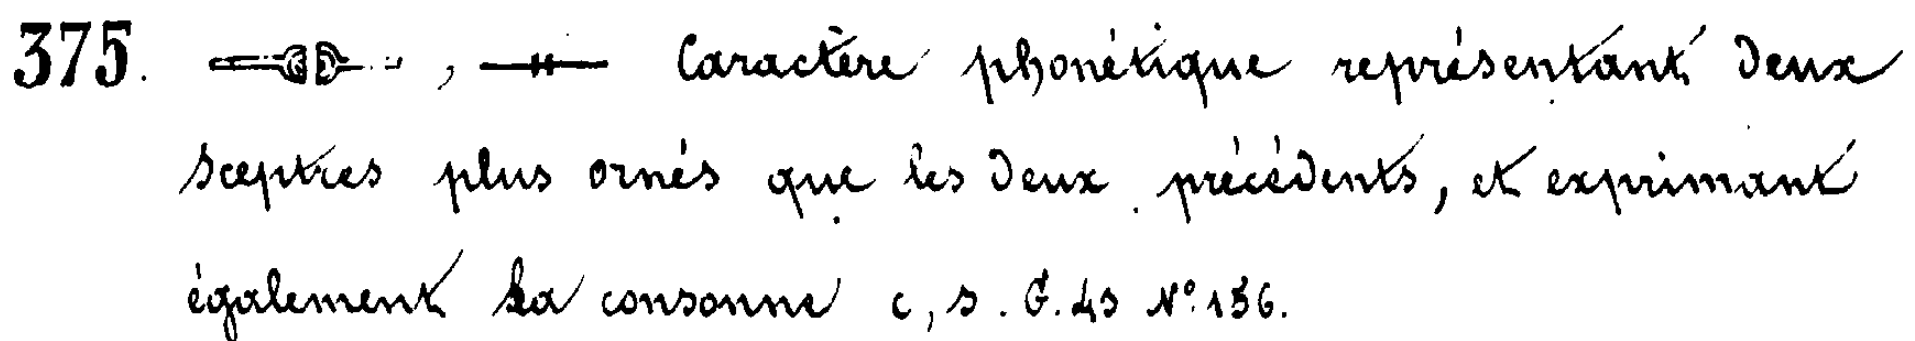 375. , Caractère phonétique représentant deux
sceptres plus ornés que les deux précédents, et exprimant
également la consonne c, s. G. 43 N.º 136.